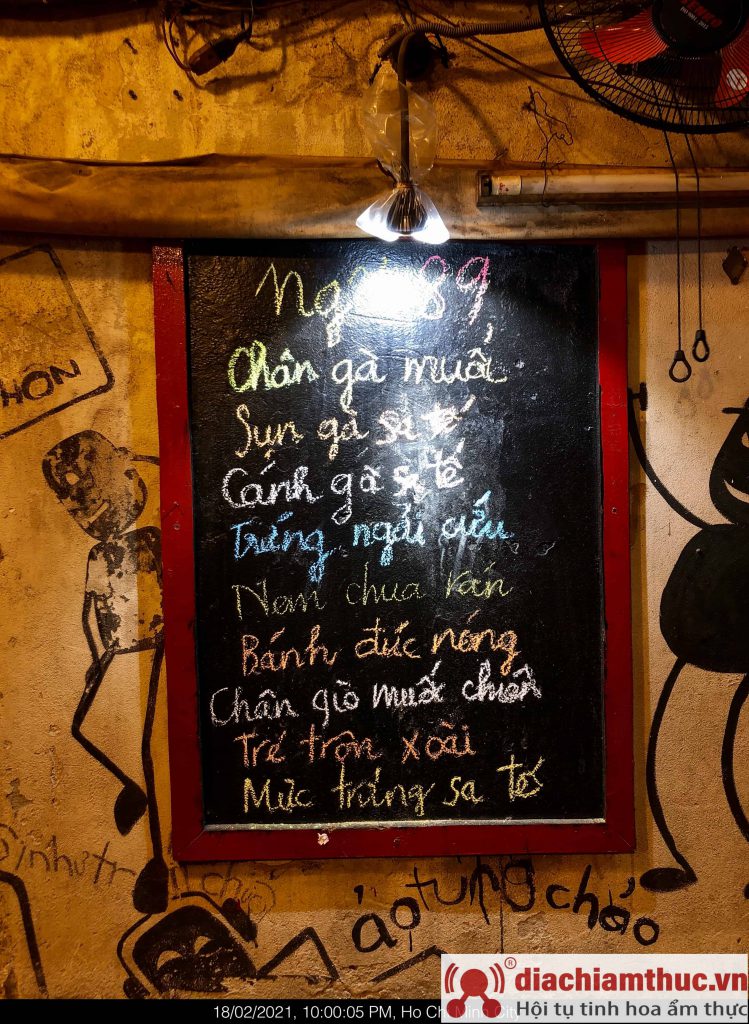 HON
Chân gà muối
Sụn gà sa tế
Cánh gà sa tế
Trứng ngải cứu
Nem chua rán
Bánh đúc nóng
Chân giò muối chiên
Tré trộn xoài
Mực trứng sa tế
áp tưng chảo
18/02/2021, 10:00:05 PM, Ho Chi Minh City
diachiamthuc.vn
Hội tụ tinh hoa ẩm thực